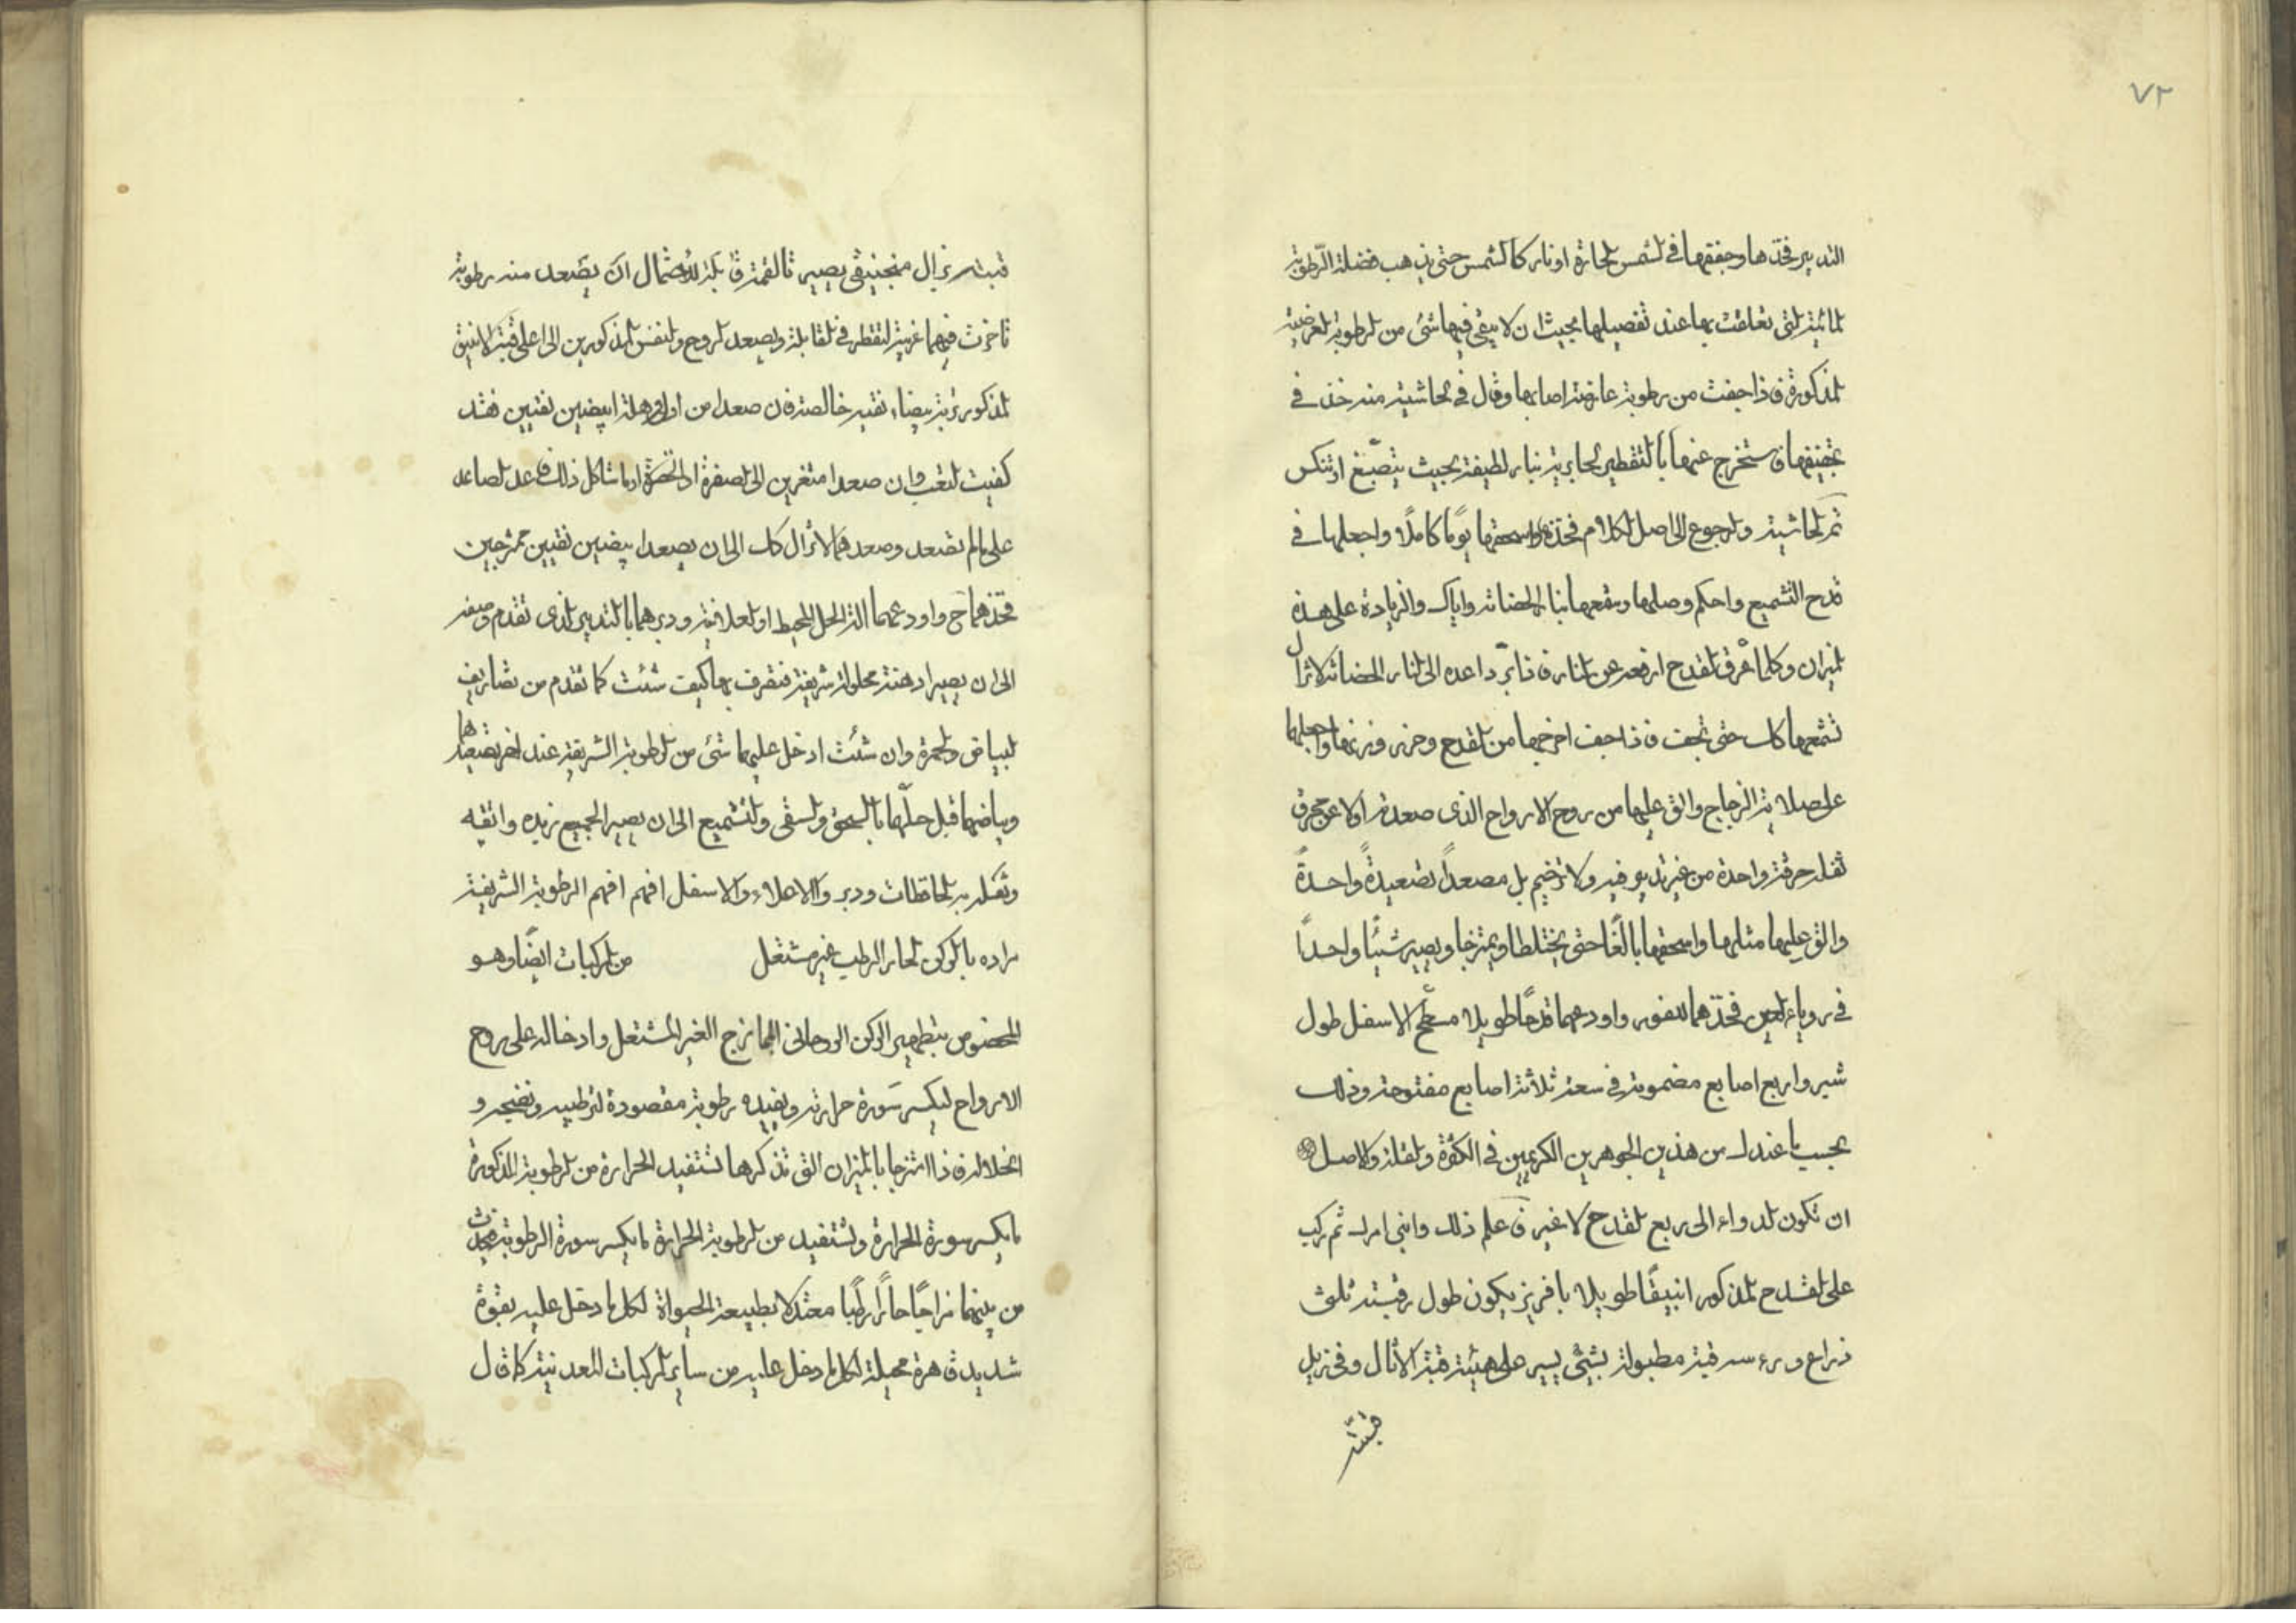 ٧٢
التدبير فخذها وجففها في الشمس الحارة او نار كالشمس حتى يذهب فضلة الرطوبة
المائية التي تعلقت بها عند تفصيلها بحيث ان لا يبقى فيها شئ من الرطوبة العرضية
المذكورة فاذا جفت من رطوبة عارضة اصابها وقال في الحاشية منه خذ في
تجفيفها فاستخرج عنها بالتقطير الجارية بنار لطيفة بحيث
تم الحاشية والرجوع الى اصل الكلام فخذه واسحقها يومًا كاملًا واجعلها في
قدح التشميع واحكم وصلها وشمعها بنار الحضانة واياك والزيادة على هذه
الميزان وكلما عرق القدح ارفعه عن النار فاذا برد اعده الى النار الحضانة لا تزال
تشمعها كك حتى تجف فاذا جف اخرجها من القدح وحرر وزنها واجعلها
على صلاية الزجاج والق عليها من روح الارواح الذى صعدته اولا عن
ثفله حرقة واحدة من غير تدبير فيه ولا ترخيم بل مصعداً تصعيدةً واحدةً
والق عليها مثلها واسحقها بالغًا حتى يختلطا ويمتزجا ويصير شيئًا واحدًا
في العين فخذهما للفور واودعهما قدحًا طويلا مسطح الاسفل طول
شبر واربع اصابع مضمومة في سعة ثلاثة اصابع مفتوحة وذلك
بحسب ما عندك من هذين الجوهرين الكريمين في الكثرة والقلة والاصل
ان تكون الدواء الى ربع القدح لا غير فاعلم ذلك وابنى امرك ثم ركب
على القدح المذكور انبيقًا طويلا بافريز يكون طول رقبته ثلث
ذراع وراسه قبة مطبولة بشئ يسير على هيئة قبة الاثال وفى ذيل
قبته
قبته ذيل منجنيقى يصير تا القمرة قابلة لاحتمال ان يصعد منه رطوبة
تاخرت فيهما غريبة لتقطر في القابلة ويصعد الروح والنفس المذكورين الى اعلى قبة الانبيق
المذكورة بيضاء نقيه خالصة فان صعدا من اول وهلة ابيضين نقيين فقد
كفيت التعب وان صعدا متغيرين الى الصفرة او الخضرة او ما شاكل ذلك فاعد الصاعد
على ما لم تصعد وصعدهما لا تزال كك الى ان يصعدا بيضين نقيين ممتزجين
فخذهما ح واودعهما الة الحل المحيط او العلاقية ودبرهما بالتدبير الذى تقدم وصفه
الى ان يصير ادهنة محلولة شريفة فتصرف بها كيف شئت كما تقدم من تصاريف
البياض والحمرة وان شئت ادخل عليهما شئ من الرطوبة الشريفة عند اخر تصعيدهما
وبياضهما قبل حلّهما بالسحق والسقى والتشميع الى ان يصير الجميع زبده وانقيه
وثقله بالحافظات ودبر والاعلاء والاسفل افهم افهم الرطوبة الشريفة
مراده بالركن الحار الرطب غير مشتعل من المركبات ايضًا وهو
المخصوص بتطهير الركن الروحانى الممازج الغير المشتعل وادخاله على روح
الارواح ليكسر سَورة حرارته ويفيده رطوبة مقصودة لترطيبه ونضيجه و
انحلاله فاذا امتزجا بالميزان التى نذكرها تستفيد الحرارة من الرطوبة المذكورة
ما يكسر سورة الحرارة وتستفيد من الرطوبة الحرارة ما يكسر سورة الرطوبة فتحدث
من بينهما مزاجًا حارًا رطبًا معتدلا بطبيعة الحيواة لكل ما دخل عليه بقوة
شديد قاهرة محيلة لكل ما دخل عليه من ساير المركبات المعدنية كما قال